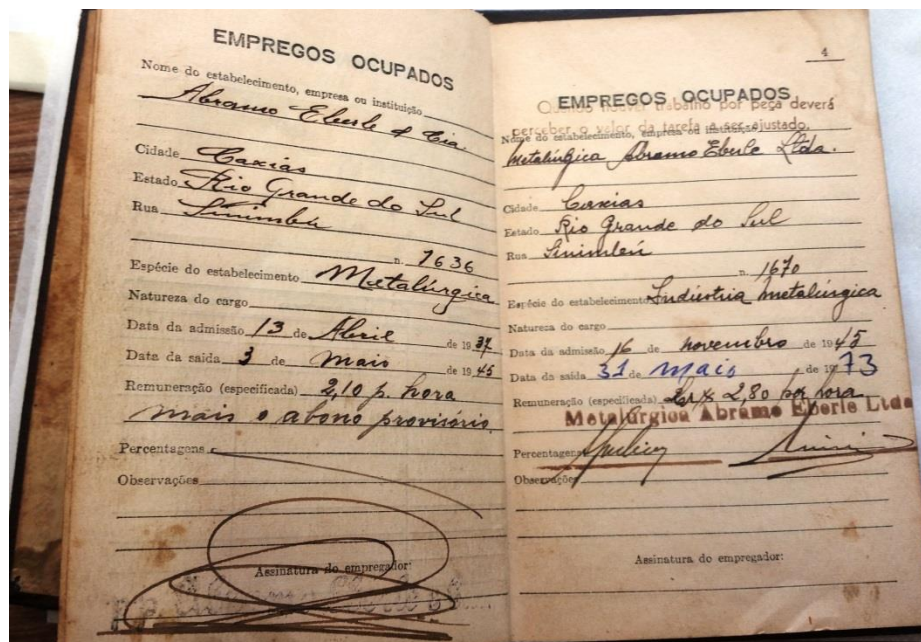 EMPREGOS OCUPADOS
Nome do estabelecimento, empresa ou instituição
Abramo Eberle & Cia.
Cidade Caxias
Estado Rio Grande do Sul
Rua Sinimbú
n. 1636
Espécie do estabelecimento Metalúrgica
Natureza do cargo
Data da admissão 13 de Abril de 1937
Data da saida 3 de maio de 1945
Remuneração (especificada) 2,10 p. hora
mais o abono provisório.
Percentagens
Observações
Assinatura do empregador:
4
EMPREGOS OCUPADOS
Quando houver trabalho por peça deverá
perceber o valor da tarefa a ser ajustado.
Nome do estabelecimento, empresa ou instituição
Metalúrgica Abramo Eberle Ltda.
Cidade Caxias
Estado Rio Grande do Sul
Rua Sinimbú
n. 1670
Espécie do estabelecimento Indústria metalúrgica
Natureza do cargo
Data da admissão 16 de novembro de 1945
Data da saida 31 de maio de 1973
Remuneração (especificada) Cr$ 2,80 por hora
Metalúrgica Abramo Eberle Ltda
Percentagens
Observações
Assinatura do empregador: